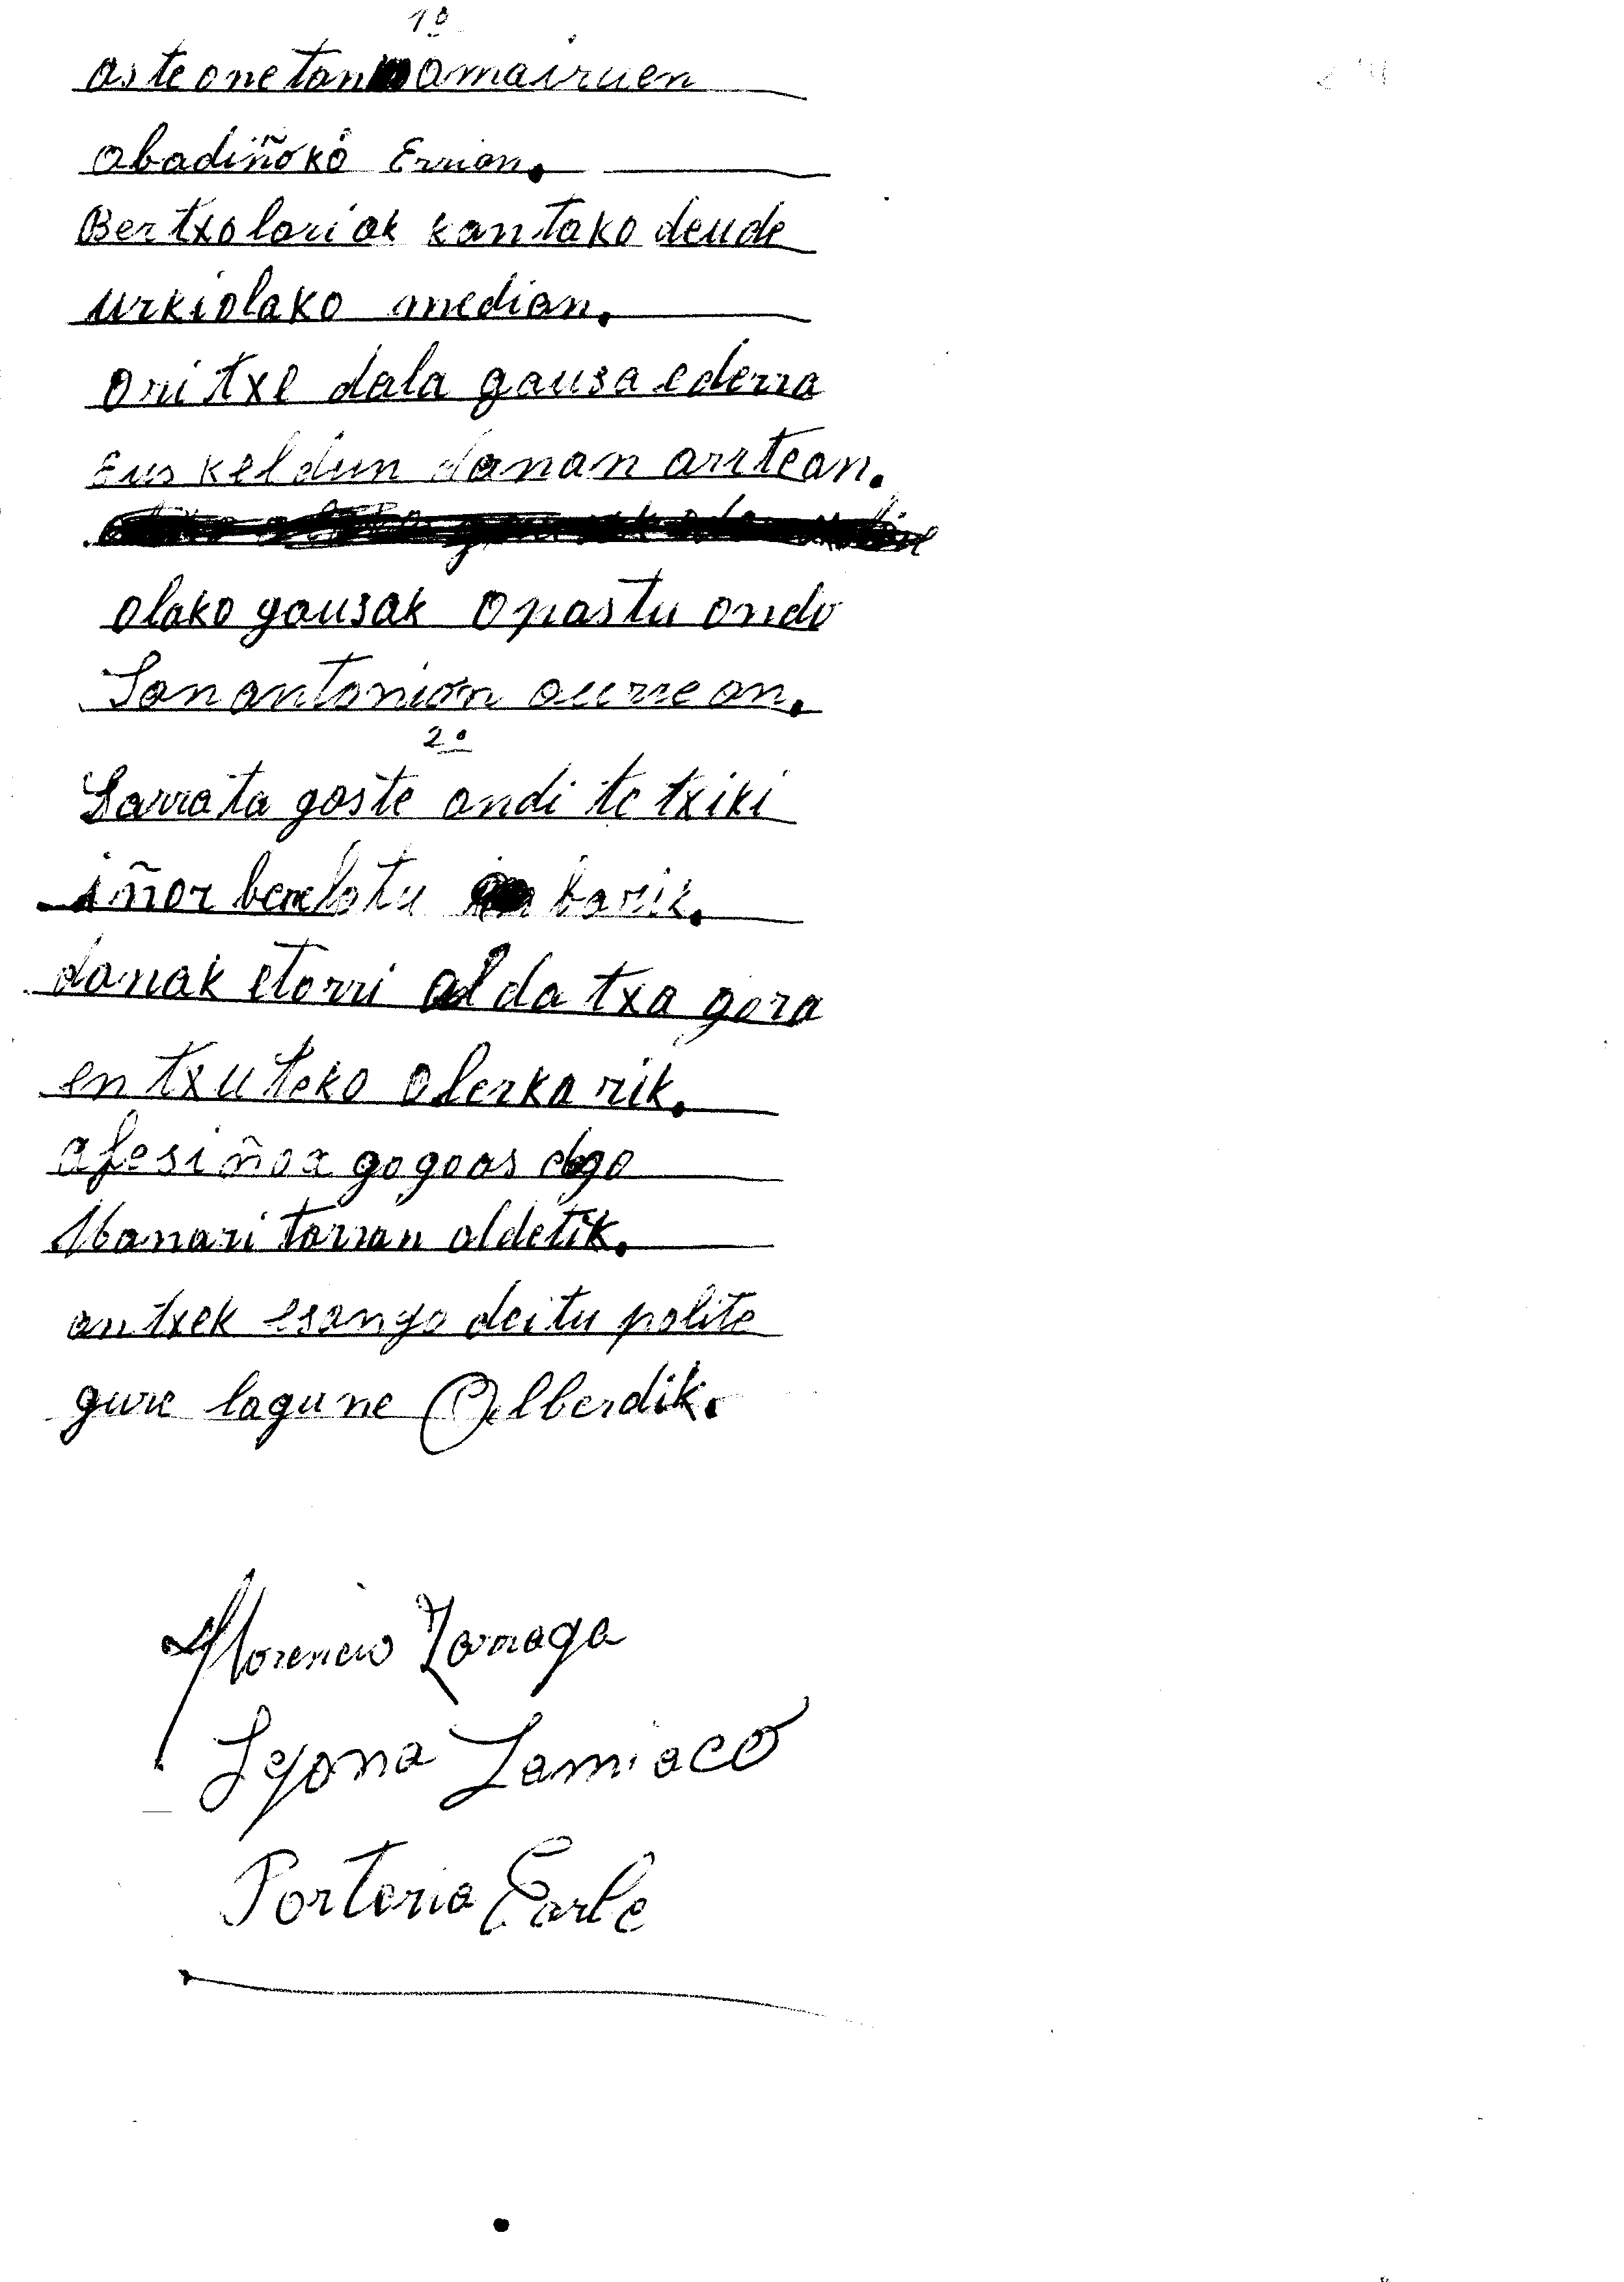 1º
aste onetan amairuen
abadiñoko Errian.
Bertxolariak kantako deude
urkiolako median.
ori txe dala gausa ederra
Euskeldun danan arrtean.
olako gausak opastu ondo
Sanantonion aurrean.
2º
Sarrata gaste andi te txiki
iñor berelotu barik.
danak etorri alda txa gora
en txuteko olerkarik.
afosiñoa gogoas dago
Manari tarran aldetik.
antxek esango deitu polito
gure lagune Alberdik.
Florencio Zarraga
Lejona Lamiaco
Porteria Earle